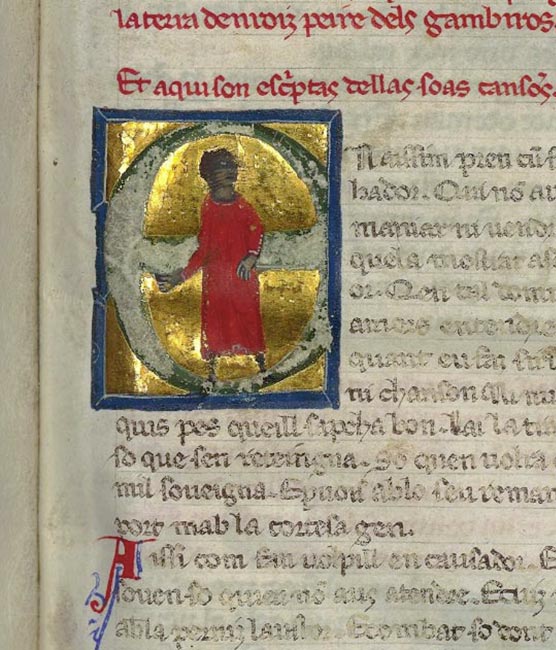 la terra denroiz peire dels gambiros
Et aqui son esc'ptas dellas soas cansos.
N aissim pren cū f
bador. Qui nō
maniar ni vendr
quela mostrat as
or. Qen tal dom
amors entend
quant eu fui
ni chanson
quis pes queill sapcha bon. Lai la tra
so que sen reteingna. So quen uolra
mil soueigna. Epuois ablo seu remar
port mab la cortesa gen.
Aissi com fan uolpill en causador. E
souen so quieu nō aus atendre. Ecuig
abla perniz lausor. Ecombat so dont